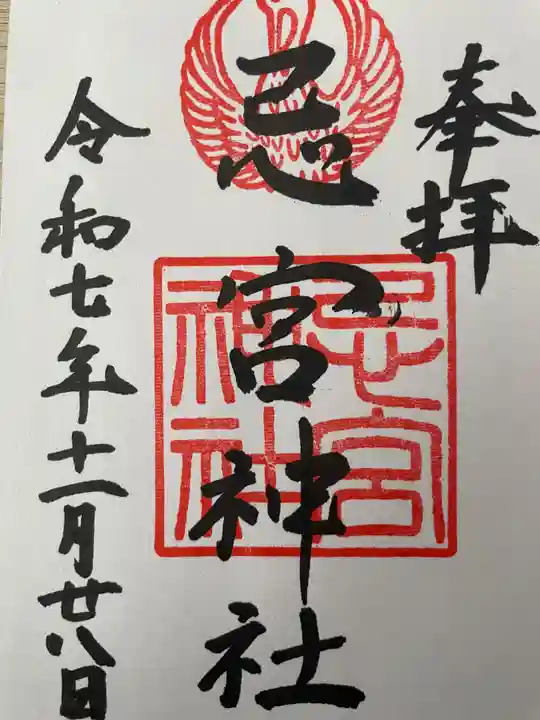 奉拝
忌宮神社
忌宮
神社
令和七年十一月廿八日